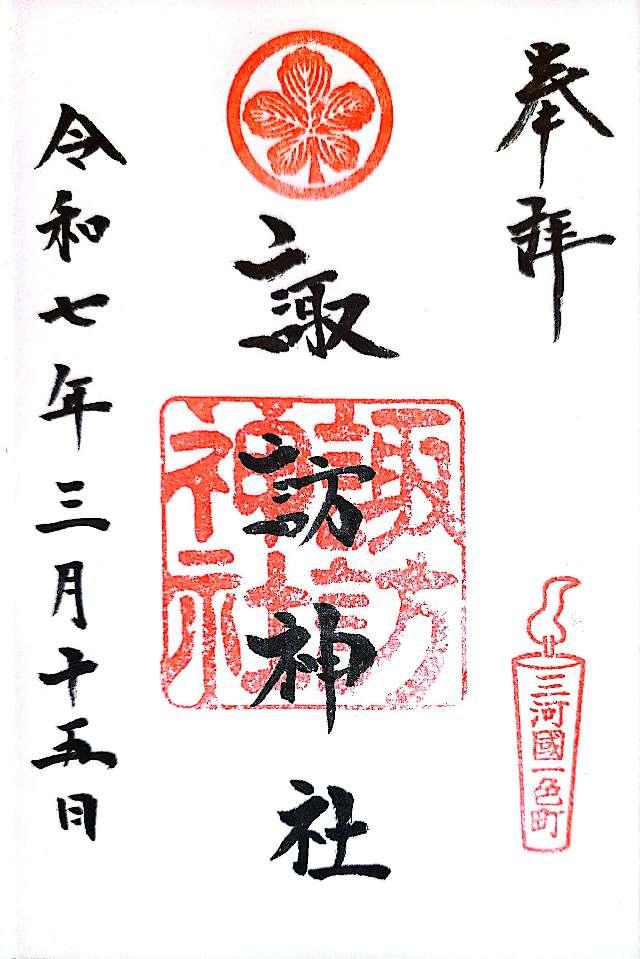 奉拝
諏訪神社
諏訪
神社
三河國一色町
令和七年三月十五日